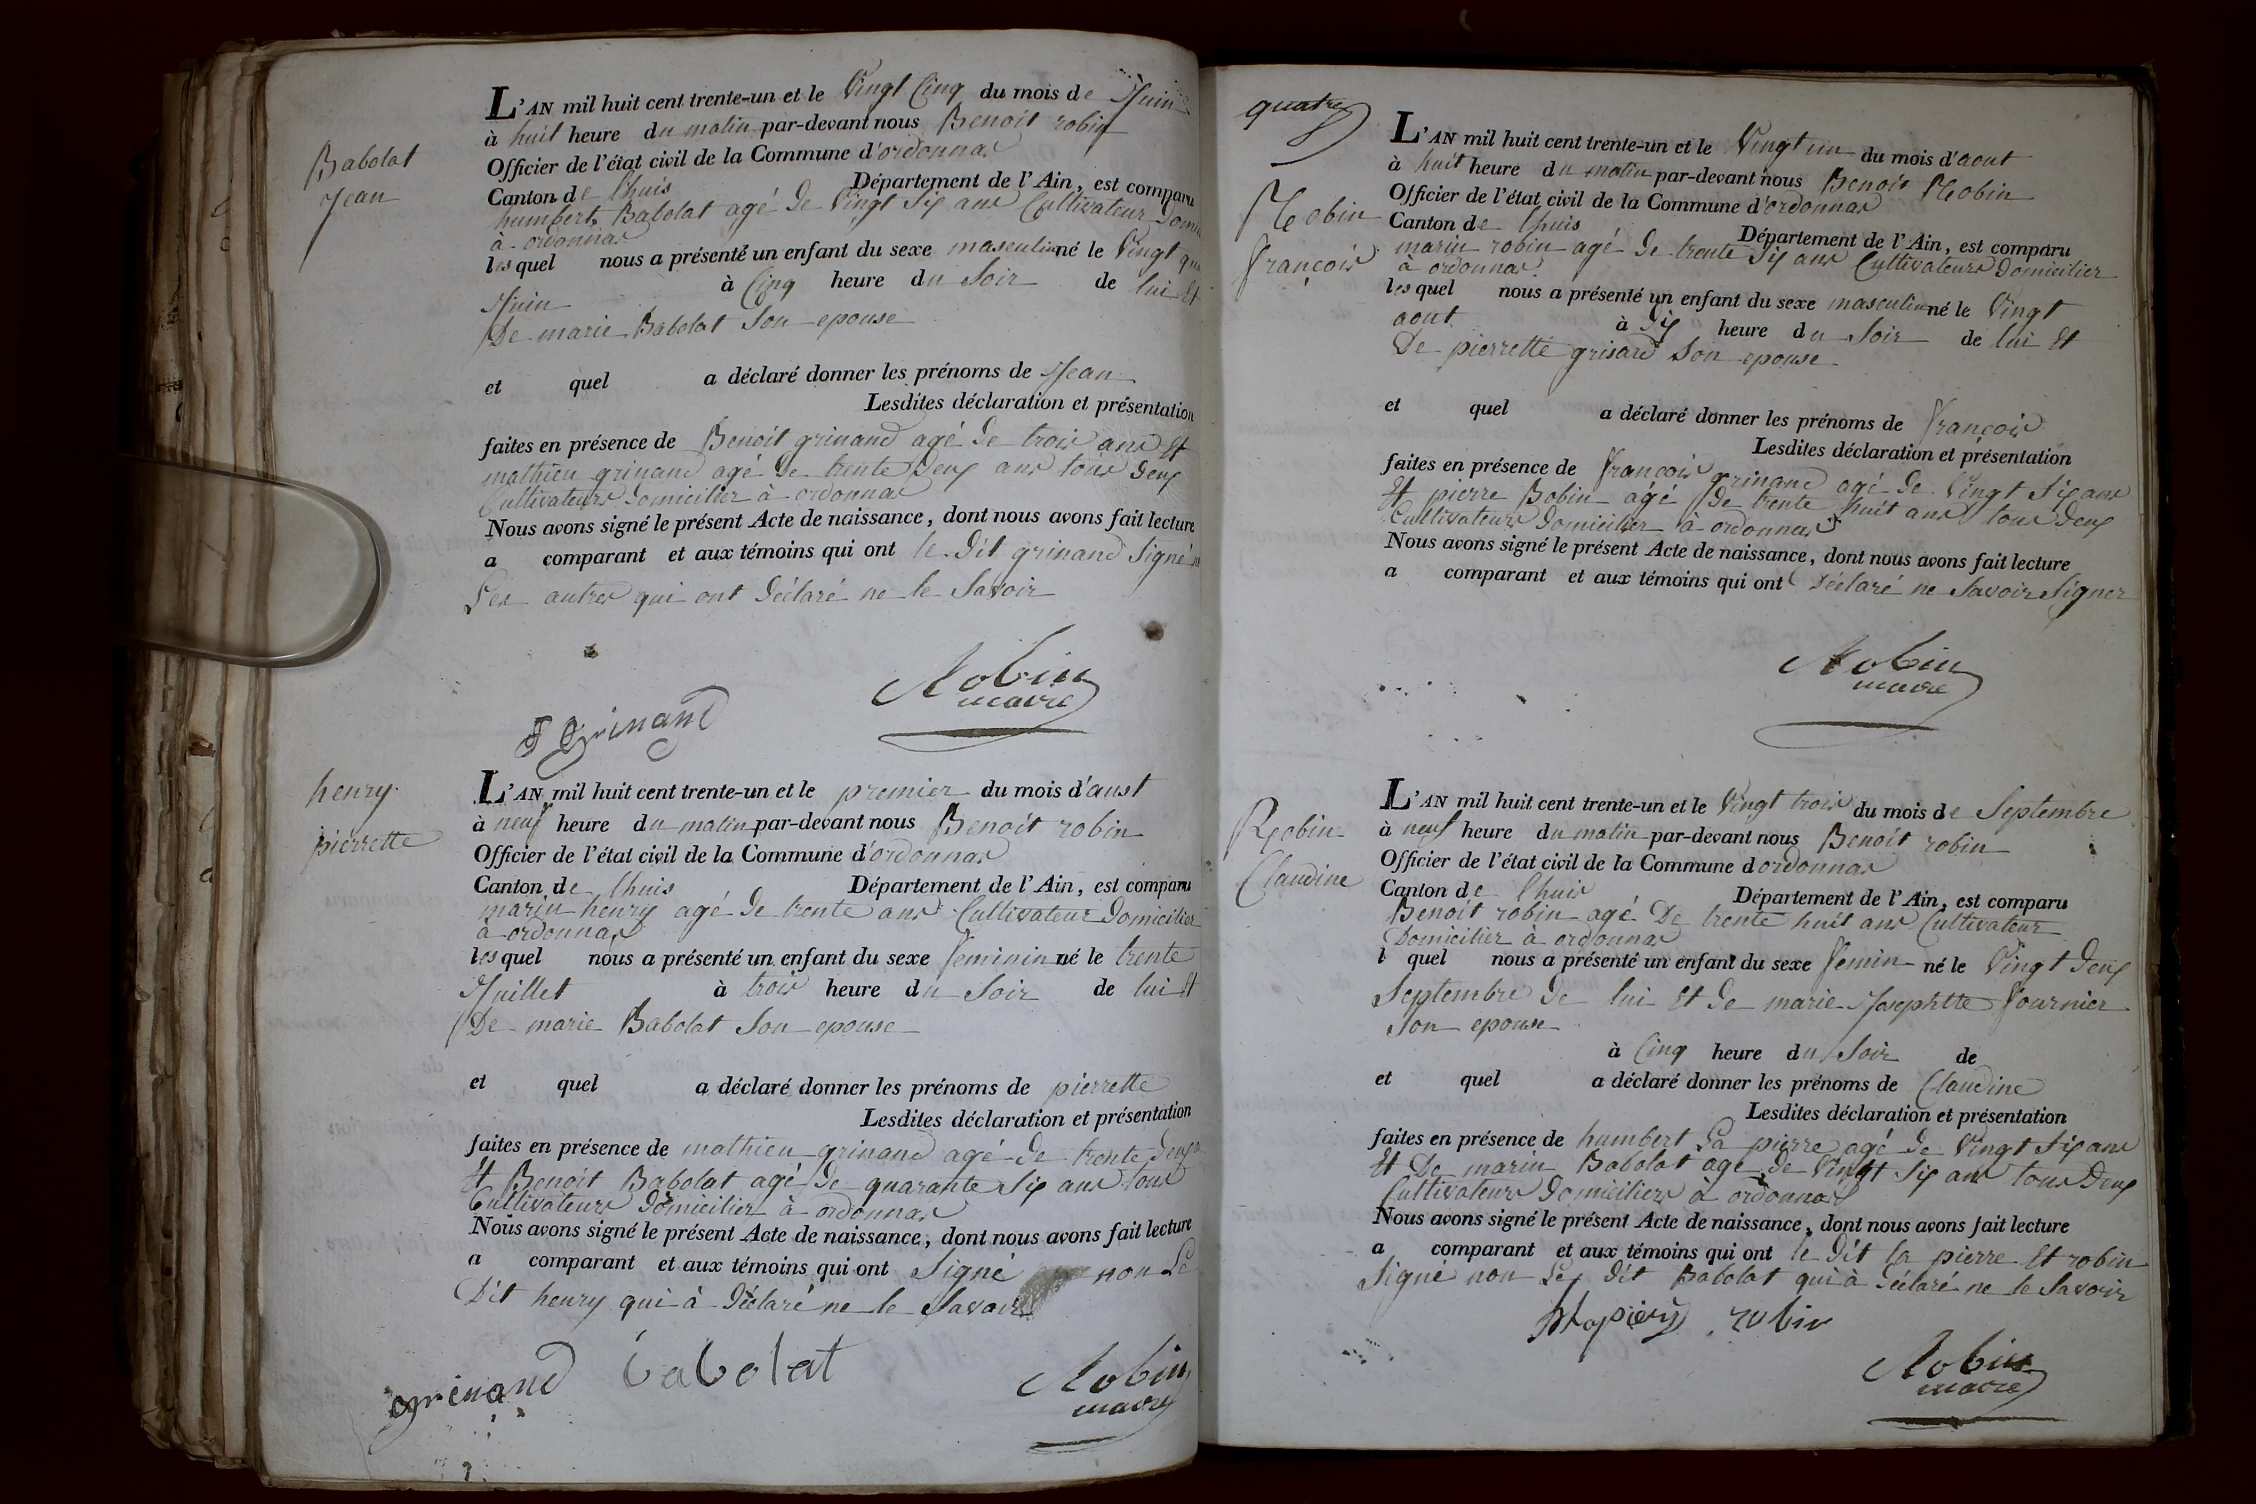 Babolat
Jean
L'AN mil huit cent trente-un et le Vingt Cinq du mois de Juin
à huit heure du matin par-devant nous Benoit robin
Officier de l'état civil de la Commune d'ordonnas
Canton de lhuis Département de l'Ain, est comparu
humbert Babolat agé de Vingt Six ans Cultivateur
à ordonnas
lesquel nous a présenté un enfant du sexe masculin né le Vingt
Juin à Cinq heure du Soir de lui Et
De marie Babolat Son epouse
et quel a déclaré donner les prénoms de Jean
Lesdites déclaration et présentation
faites en présence de Benoit grinand agé de trois ans Et
mathieu grinand agé de trente deux ans tous deux
Cultivateurs domicilier à ordonnas
Nous avons signé le présent Acte de naissance, dont nous avons fait lecture
a comparant et aux témoins qui ont le dit grinand Signé
Les autres qui ont déclaré ne le Savoir
Robin
maire
grinand
henry
pierrette
L'AN mil huit cent trente-un et le premier du mois d'aust
à neuf heure du matin par-devant nous Benoit robin
Officier de l'état civil de la Commune d'ordonnas
Canton de lhuis Département de l'Ain, est comparu
marin henry agé de trente ans Cultivateur domicilier
a ordonnas
lesquel nous a présenté un enfant du sexe feminin né le trente
Juillet à trois heure du Soir de lui Et
De marie Babolat Son epouse
et quel a déclaré donner les prénoms de pierrette
Lesdites déclaration et présentation
faites en présence de mathieu grinand agé de trente deux
Et Benoit Babolat agé de quarante Six ans tous
Cultivateurs domicilier à ordonnas
Nous avons signé le présent Acte de naissance, dont nous avons fait lecture
a comparant et aux témoins qui ont Signé non Le
Dit henry qui à déclaré ne le Savoir
grinand babolat
Robin
maire
quatre
Robin
françois
L'AN mil huit cent trente-un et le Vingt un du mois d'aout
à huit heure du matin par-devant nous Benoit Robin
Officier de l'état civil de la Commune d'ordonnas
Canton de lhuis Département de l'Ain, est comparu
marin robin agé de trente Six ans Cultivateurs domicilier
à ordonnas
lesquel nous a présenté un enfant du sexe masculin né le Vingt
aout à Dix heure du Soir de lui Et
De pierrette grisard Son epouse
et quel a déclaré donner les prénoms de françois
Lesdites déclaration et présentation
faites en présence de françois grinand agé de Vingt Six ans
Et pierre Bobin agé de trente huit ans tous deux
Cultivateurs domicilier à ordonnas
Nous avons signé le présent Acte de naissance, dont nous avons fait lecture
a comparant et aux témoins qui ont Déclaré ne Savoir Signer
Robin
maire
Robin
Claudine
L'AN mil huit cent trente-un et le Vingt trois du mois de Septembre
à neuf heure du matin par-devant nous Benoit robin
Officier de l'état civil de la Commune dordonnas
Canton de lhuis Département de l'Ain, est comparu
Benoit robin agé De trente huit ans Cultivateur
Domicilier à ordonnas
l quel nous a présenté un enfant du sexe femin né le Vingt deux
Septembre de lui Et de marie Josephtte fournier
Son epouse
à Cinq heure du Soir de
et quel a déclaré donner les prénoms de Claudine
Lesdites déclaration et présentation
faites en présence de humbert La pierre agé de Vingt Six ans
Et De marin Babolat agé de Vingt Six ans tous Deux
Cultivateurs domiciliers à ordonnas
Nous avons signé le présent Acte de naissance, dont nous avons fait lecture
a comparant et aux témoins qui ont le dit la pierre Et robin
Signé non Le dit Babolat qui à déclaré ne le Savoir
robin
Robin
maire